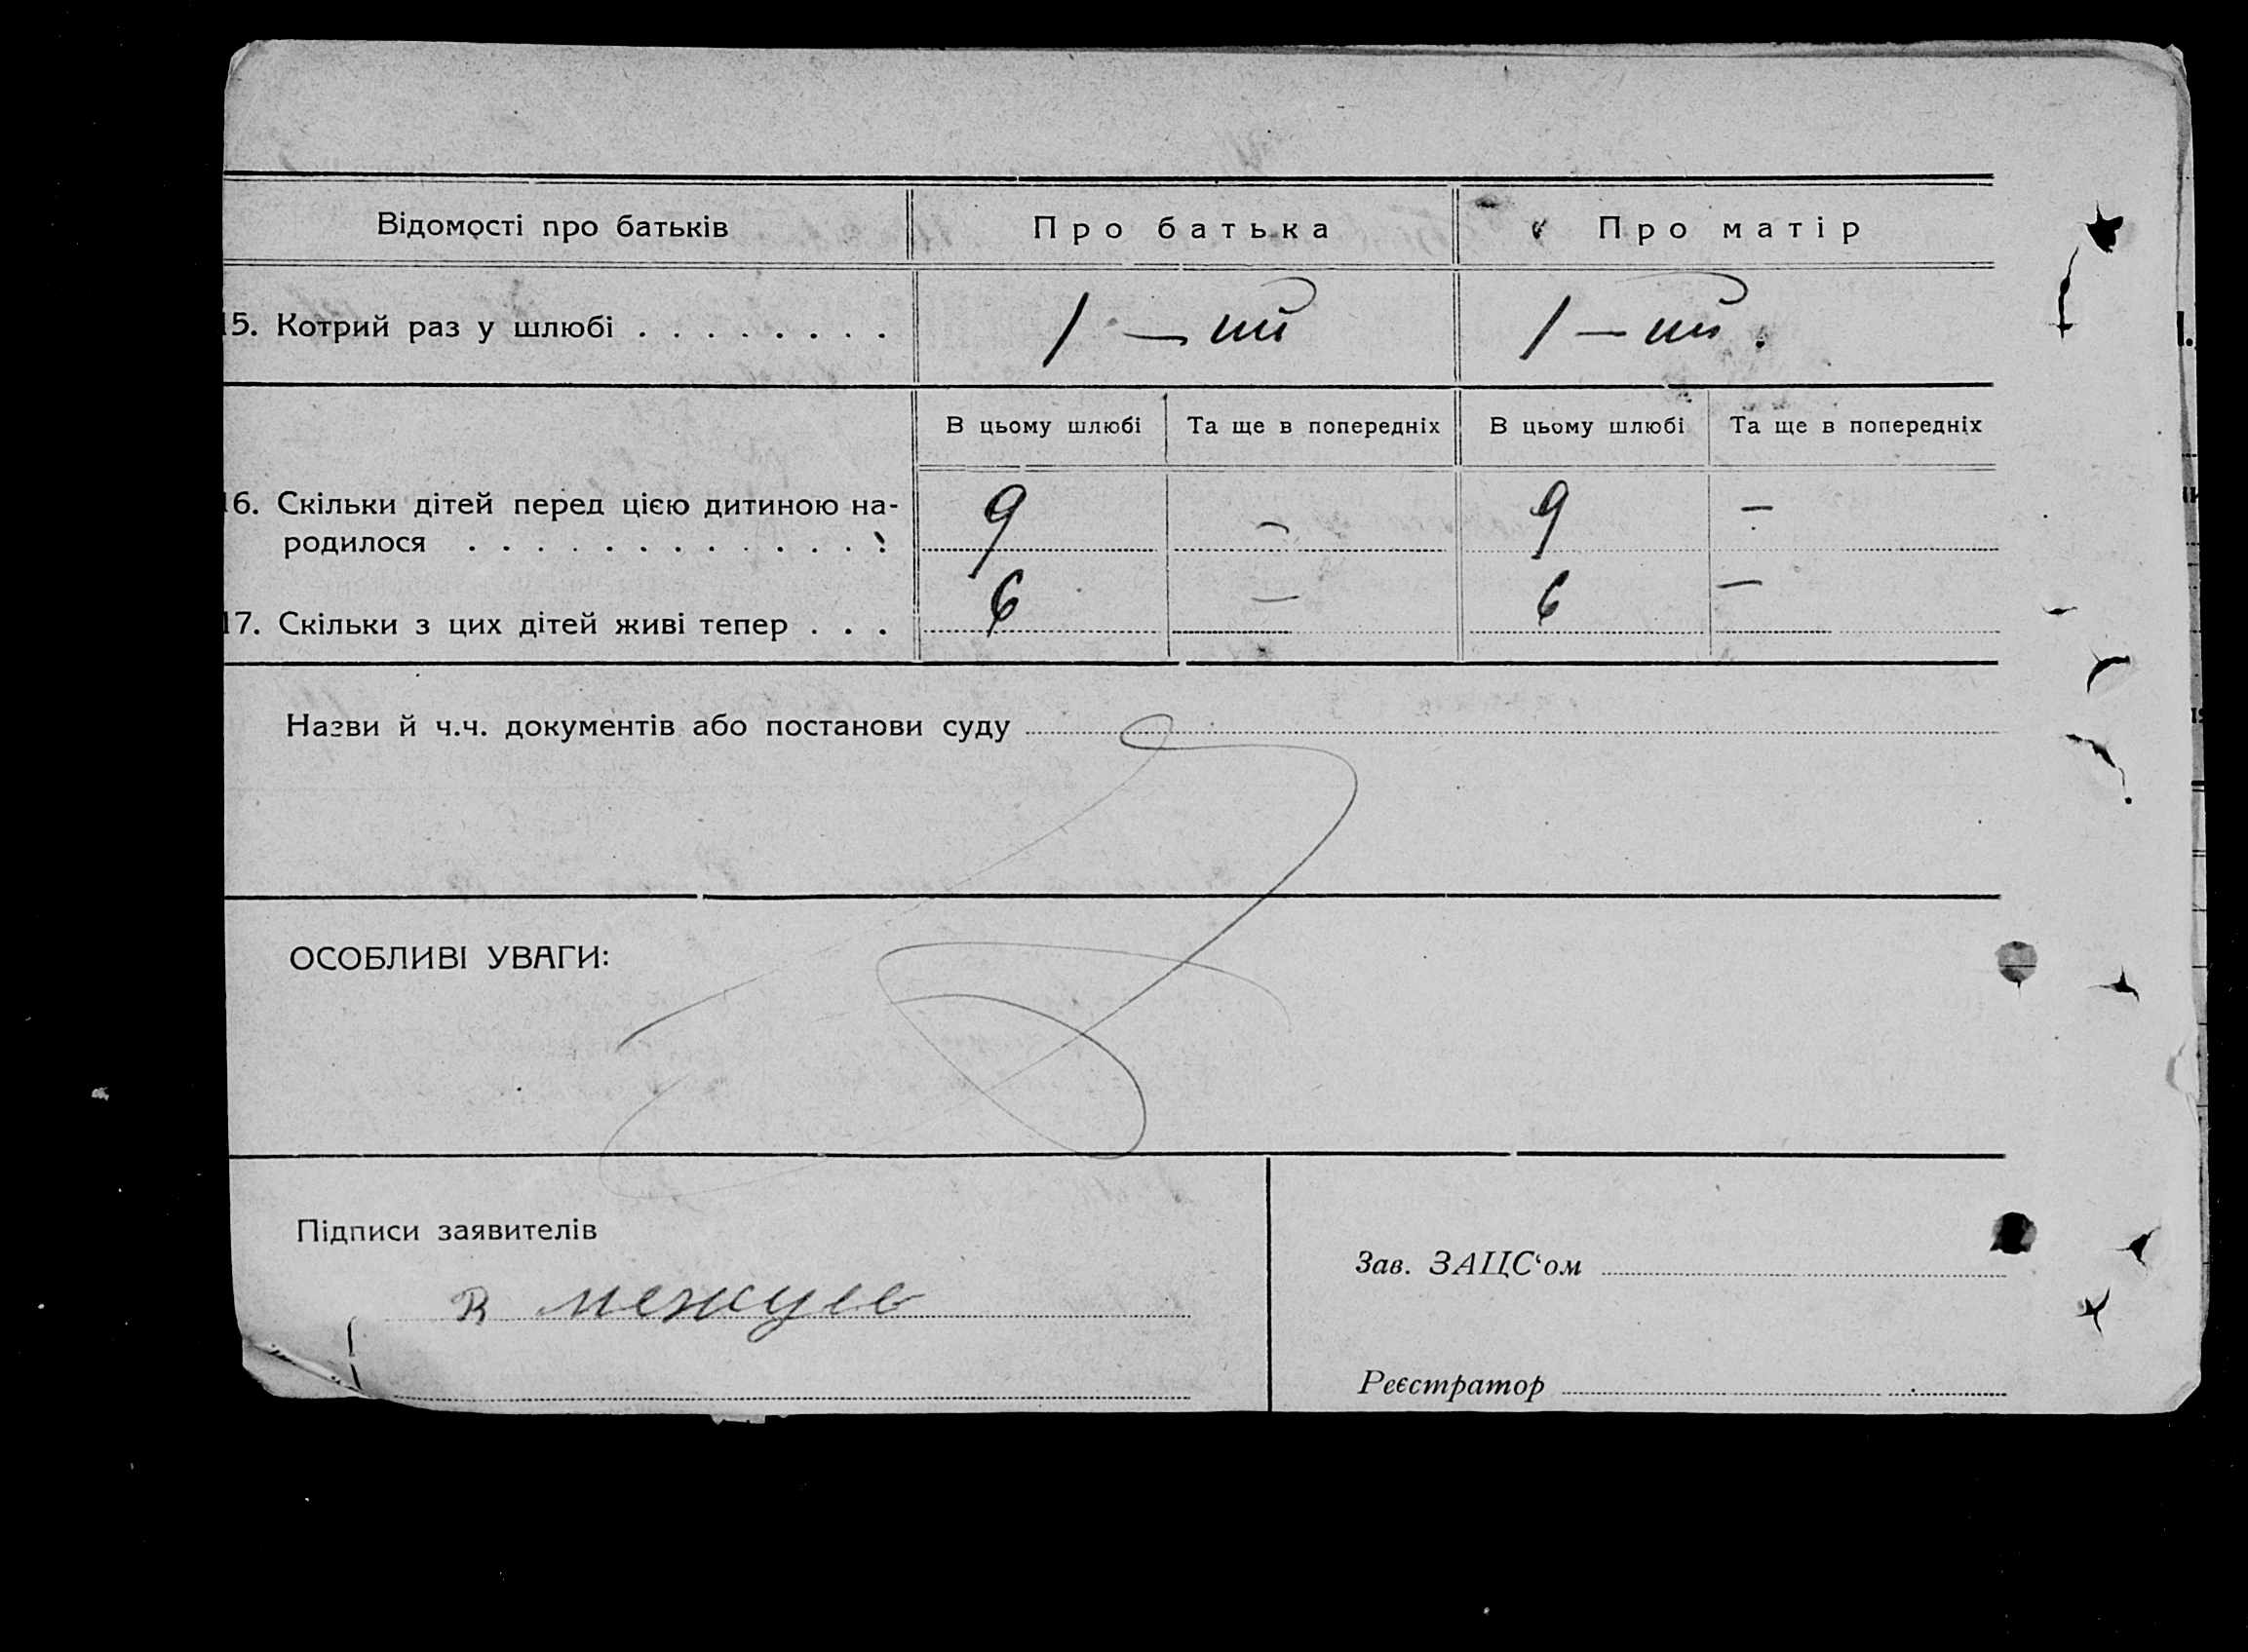 Відомості про батьків Про батька Про матір
15. Котрий раз у шлюбі . . . . . . . . 1 — ий 1 — ий.
В цьому шлюбі Та ще в попередніх В цьому шлюбі Та ще в попередніх
16. Скільки дітей перед цією дитиною на-
родилося . . . . . . . . . . . . . 9 — 9 —
17. Скільки з цих дітей живі тепер . . . 6 — 6 —
Назви й ч.ч. документів або постанови суду
ОСОБЛИВІ УВАГИ:
Підписи заявителів
Зав. ЗАЦС‘ом
Реєстратор